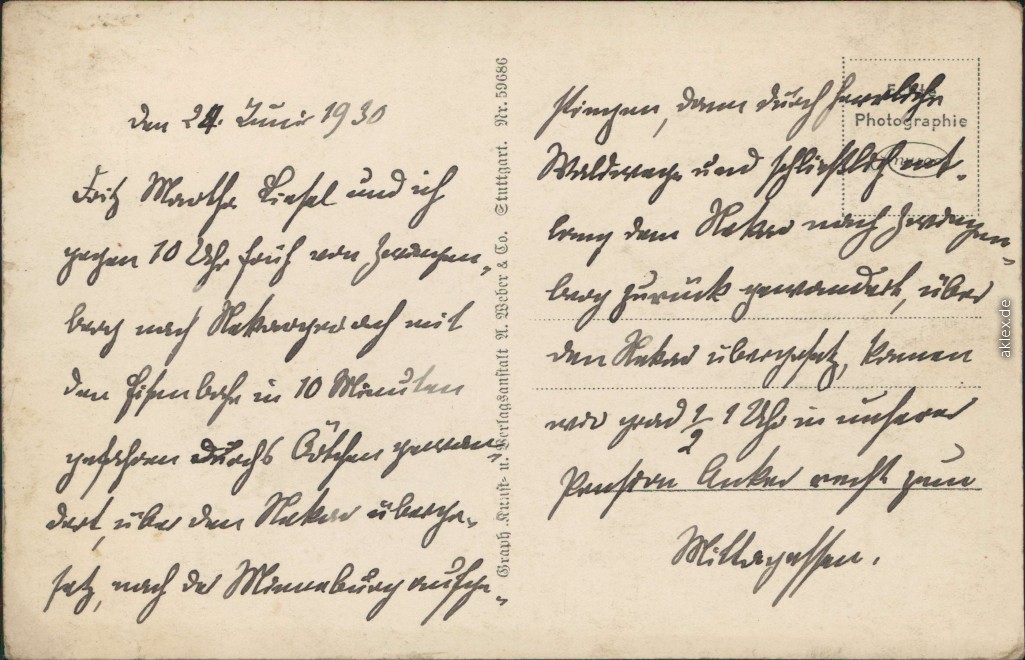 den 24. Juni 1930
Fritz Martha Liesel und ich
gegen 10 Uhr früh von Zwingen„
berg nach Nekargerach mit
den Eisenbahn in 10 Minuten
gefahren durchs gewan„
dert, über den Nekar überge„
setz, nach der Minneburg aufge„
Graph. Kunst- u. Verlagsanstalt A. Weber & Co. Stuttgart. Nr. 59686
stiegen, dann durch herrliche
Waldwege und schließlich ent„
lang dem Nekar nach Zwingen„
berg zurück gewandert, über
den Nekar übergesetz, kamen
wir grad 1/2 1 Uhr in unserer
Pension Anker recht zum
Mittagessen.
Photographie
aklex.de